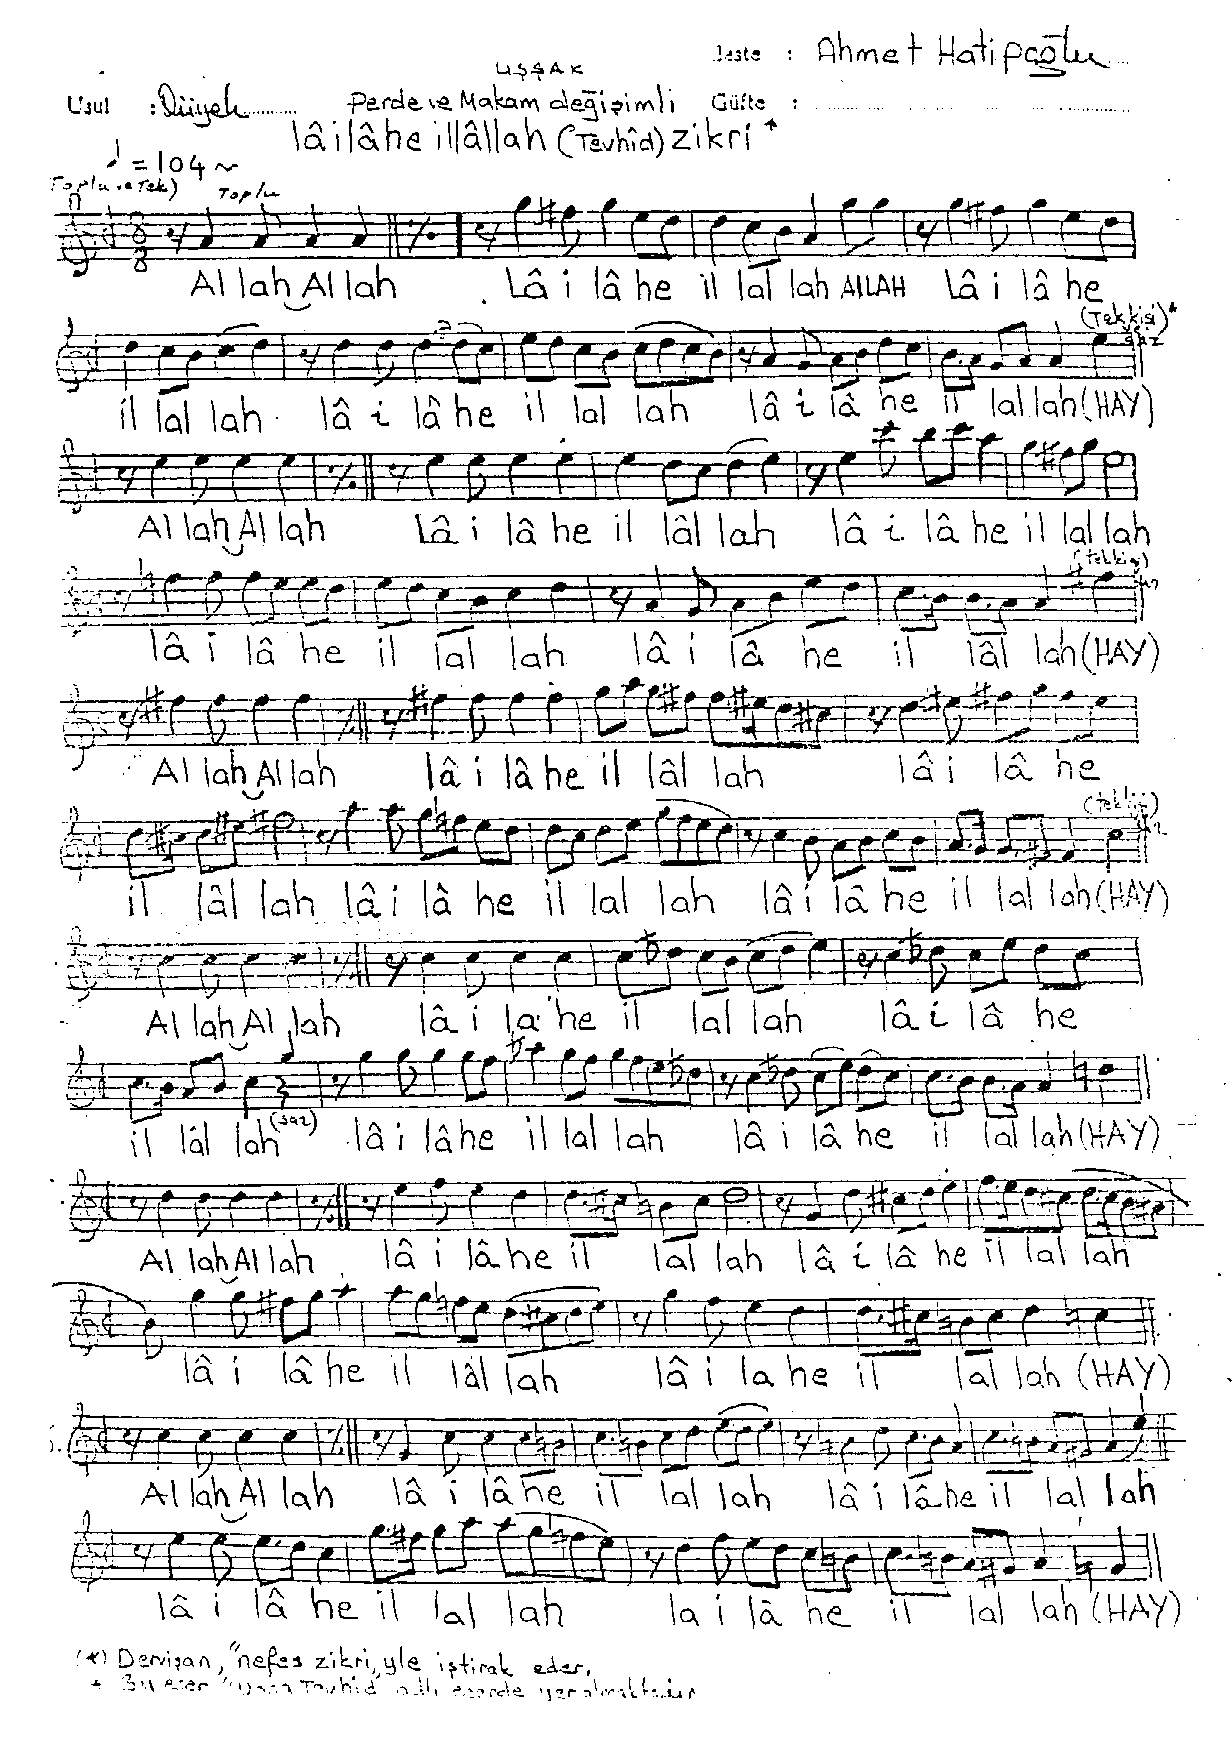 Beste : Ahmet Hatipoğlu
UŞŞAK
Usul : Düyek Perde ve Makam değişimli Güfte :
lâ ilâhe illâllah (Tevhîd) zikri *
♩ = 104 ~
Toplu ve Tek) Toplu
Al lah Al lah Lâ i lâ he il lal lah ALLAH Lâ i lâ he
(Tek kişi)*
saz
il lal lah lâ i lâ he il lal lah lâ i lâ he il lal lah (HAY)
Al lah Al lah Lâ i lâ he il lâl lah lâ i lâ he il lal lah
(tek kişi)
lâ i lâ he il lal lah lâ i lâ he il lâl lah (HAY)
Al lah Al lah lâ i lâ he il lâl lah lâ i lâ he
(tek kiş)
il lâl lah lâ i lâ he il lal lah lâ i lâ he il lal lah (HAY)
Al lah Al lah lâ i la he il lal lah lâ i lâ he
il lâl lah (saz) lâ i lâ he il lal lah lâ i lâ he il lal lah (HAY)
Al lah Al lah lâ i lâ he il lal lah lâ i lâ he il lal lah
lâ i lâ he il lâl lah lâ i la he il lal lah (HAY)
Al lah Al lah lâ i lâ he il lal lah lâ i lâ he il lal lah
lâ i lâ he il lal lah la i lâ he il lal lah (HAY)
(*) Dervişan, "nefes zikri"yle iştirak eder.
* Bu eser Tevhid adlı eserde yer almaktadır